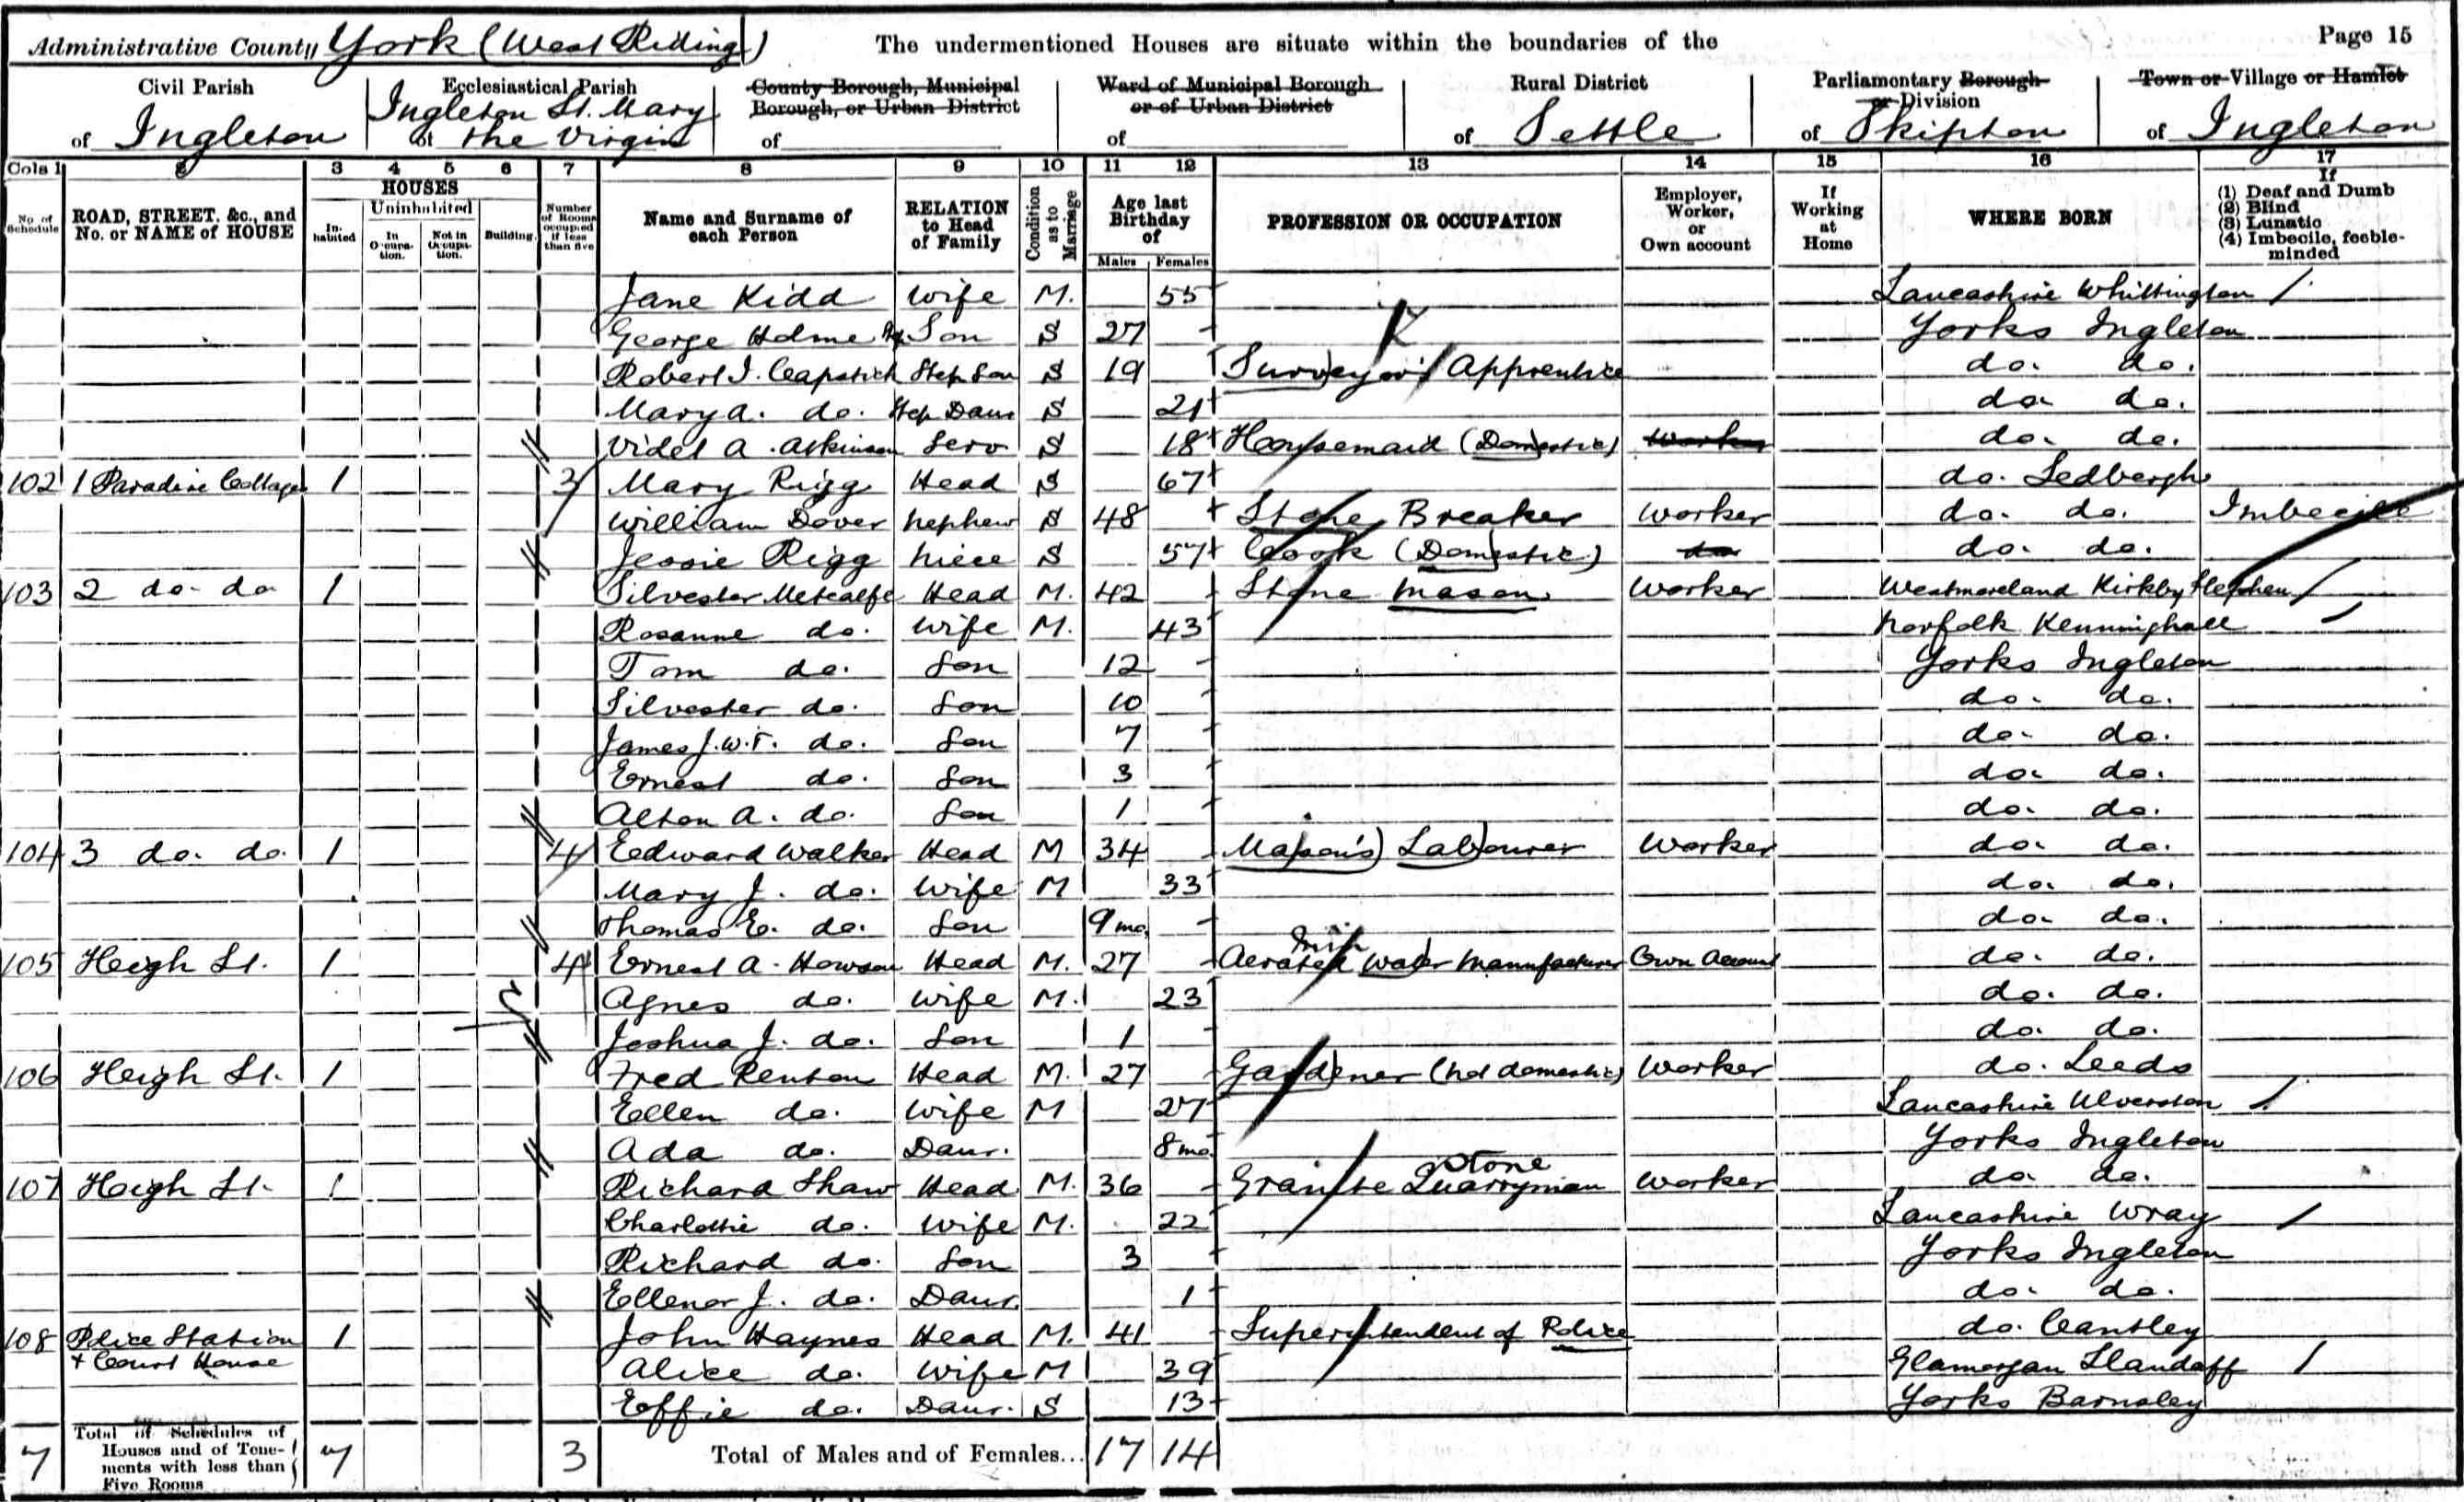 Administrative County York (West Riding) The undermentioned Houses are situate within the boundaries of the Page 15
Civil Parish of Ingleton
Ecclesiastical Parish of Ingleton St. Mary the Virgin
County Borough, Municipal Borough, or Urban District of
Ward of Municipal Borough or of Urban District of
Rural District of Settle
Parliamentary Borough or Division of Skipton
Town or Village or Hamlet of Ingleton
Cols 1 2 3 4 5 6 7 8 9 10 11 12 13 14 15 16 17
No. of Schedule
ROAD, STREET, &c., and No. or NAME of HOUSE
HOUSES
Inhabited
Uninhabited
In Occupation.
Not in Occupation.
Building.
Number of Rooms occupied if less than five
Name and Surname of each Person
RELATION to Head of Family
Condition as to Marriage
Age last Birthday of
Males Females
PROFESSION OR OCCUPATION
Employer, Worker, or Own account
If Working at Home
WHERE BORN
If
(1) Deaf and Dumb
(2) Blind
(3) Lunatic
(4) Imbecile, feeble-minded
Jane Kidd Wife M. 55 Lancashire Whittington
George Holme Son S 27 Yorks Ingleton
Robert J. Capstick Step Son S 19 Surveyor's Apprentice do. do.
Mary A. do. Step Daur S 21 do do.
Videt A. Atkinson Serv S 18 Housemaid (Domestic) Worker do. do.
102 1 Paradise Cottages 1 3 Mary Rigg Head S 67 do. Sedbergh
William Dover Nephew S 48 Stone Breaker Worker do. do. Imbecile
Jessie Rigg Niece S 57 Cook (Domestic) do do. do.
103 2 do. do 1 Silvester Metcalfe Head M. 42 Stone Mason Worker Westmoreland Kirkby Stephen
Rosanne do. Wife M. 43 Norfolk Kenninghall
Tom do. Son 12 Yorks Ingleton
Silvester do. Son 10 do. do.
James J.W.T. do. Son 7 do. do.
Ernest do. Son 3 do. do.
Alton A. do. Son 1 do. do.
104 3 do. do. 1 4 Edward Walker Head M 34 Mason's Labourer Worker do. do.
Mary J. do. Wife M 33 do. do.
Thomas E. do. Son 9 mo. do. do.
105 Heigh St. 1 4 Ernest A. Howson Head M. 27 Aerated Min Water Manufacturer Own Account do. do.
Agnes do. Wife M. 23 do. do.
Joshua J. do. Son 1 do. do.
106 Heigh St. 1 Fred Renton Head M. 27 Gardener (not domestic) Worker do. Leeds
Ellen do. Wife M 27 Lancashire Ulverston
Ada do. Daur. 8 mo. Yorks Ingleton
107 Heigh St. 1 Richard Shaw Head M. 36 Granite Stone Quarryman Worker do. do.
Charlottie do. Wife M. 22 Lancashire Wray
Richard do. Son 3 Yorks Ingleton
Ellenor J. do. Daur. 1 do. do.
108 Police Station 1 John Haynes Head M. 41 Superintendent of Police do. Cantley
+ Court House Alice do. Wife M 39 Glamorgan Llandaff
Effie do. Daur. S 13 Yorks Barnsley
7 Total of Schedules of Houses and of Tenements with less than Five Rooms 7 3 Total of Males and of Females... 17 14